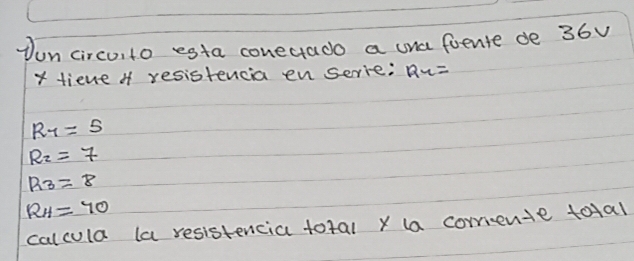 1) un circuito esta conectado a una fuente de 36v
y tiene 4 resistencia en serie: R1=
R1 = 5
R2 = 7
R3 = 8
R4 = 10
calcula la resistencia total y la corriente total